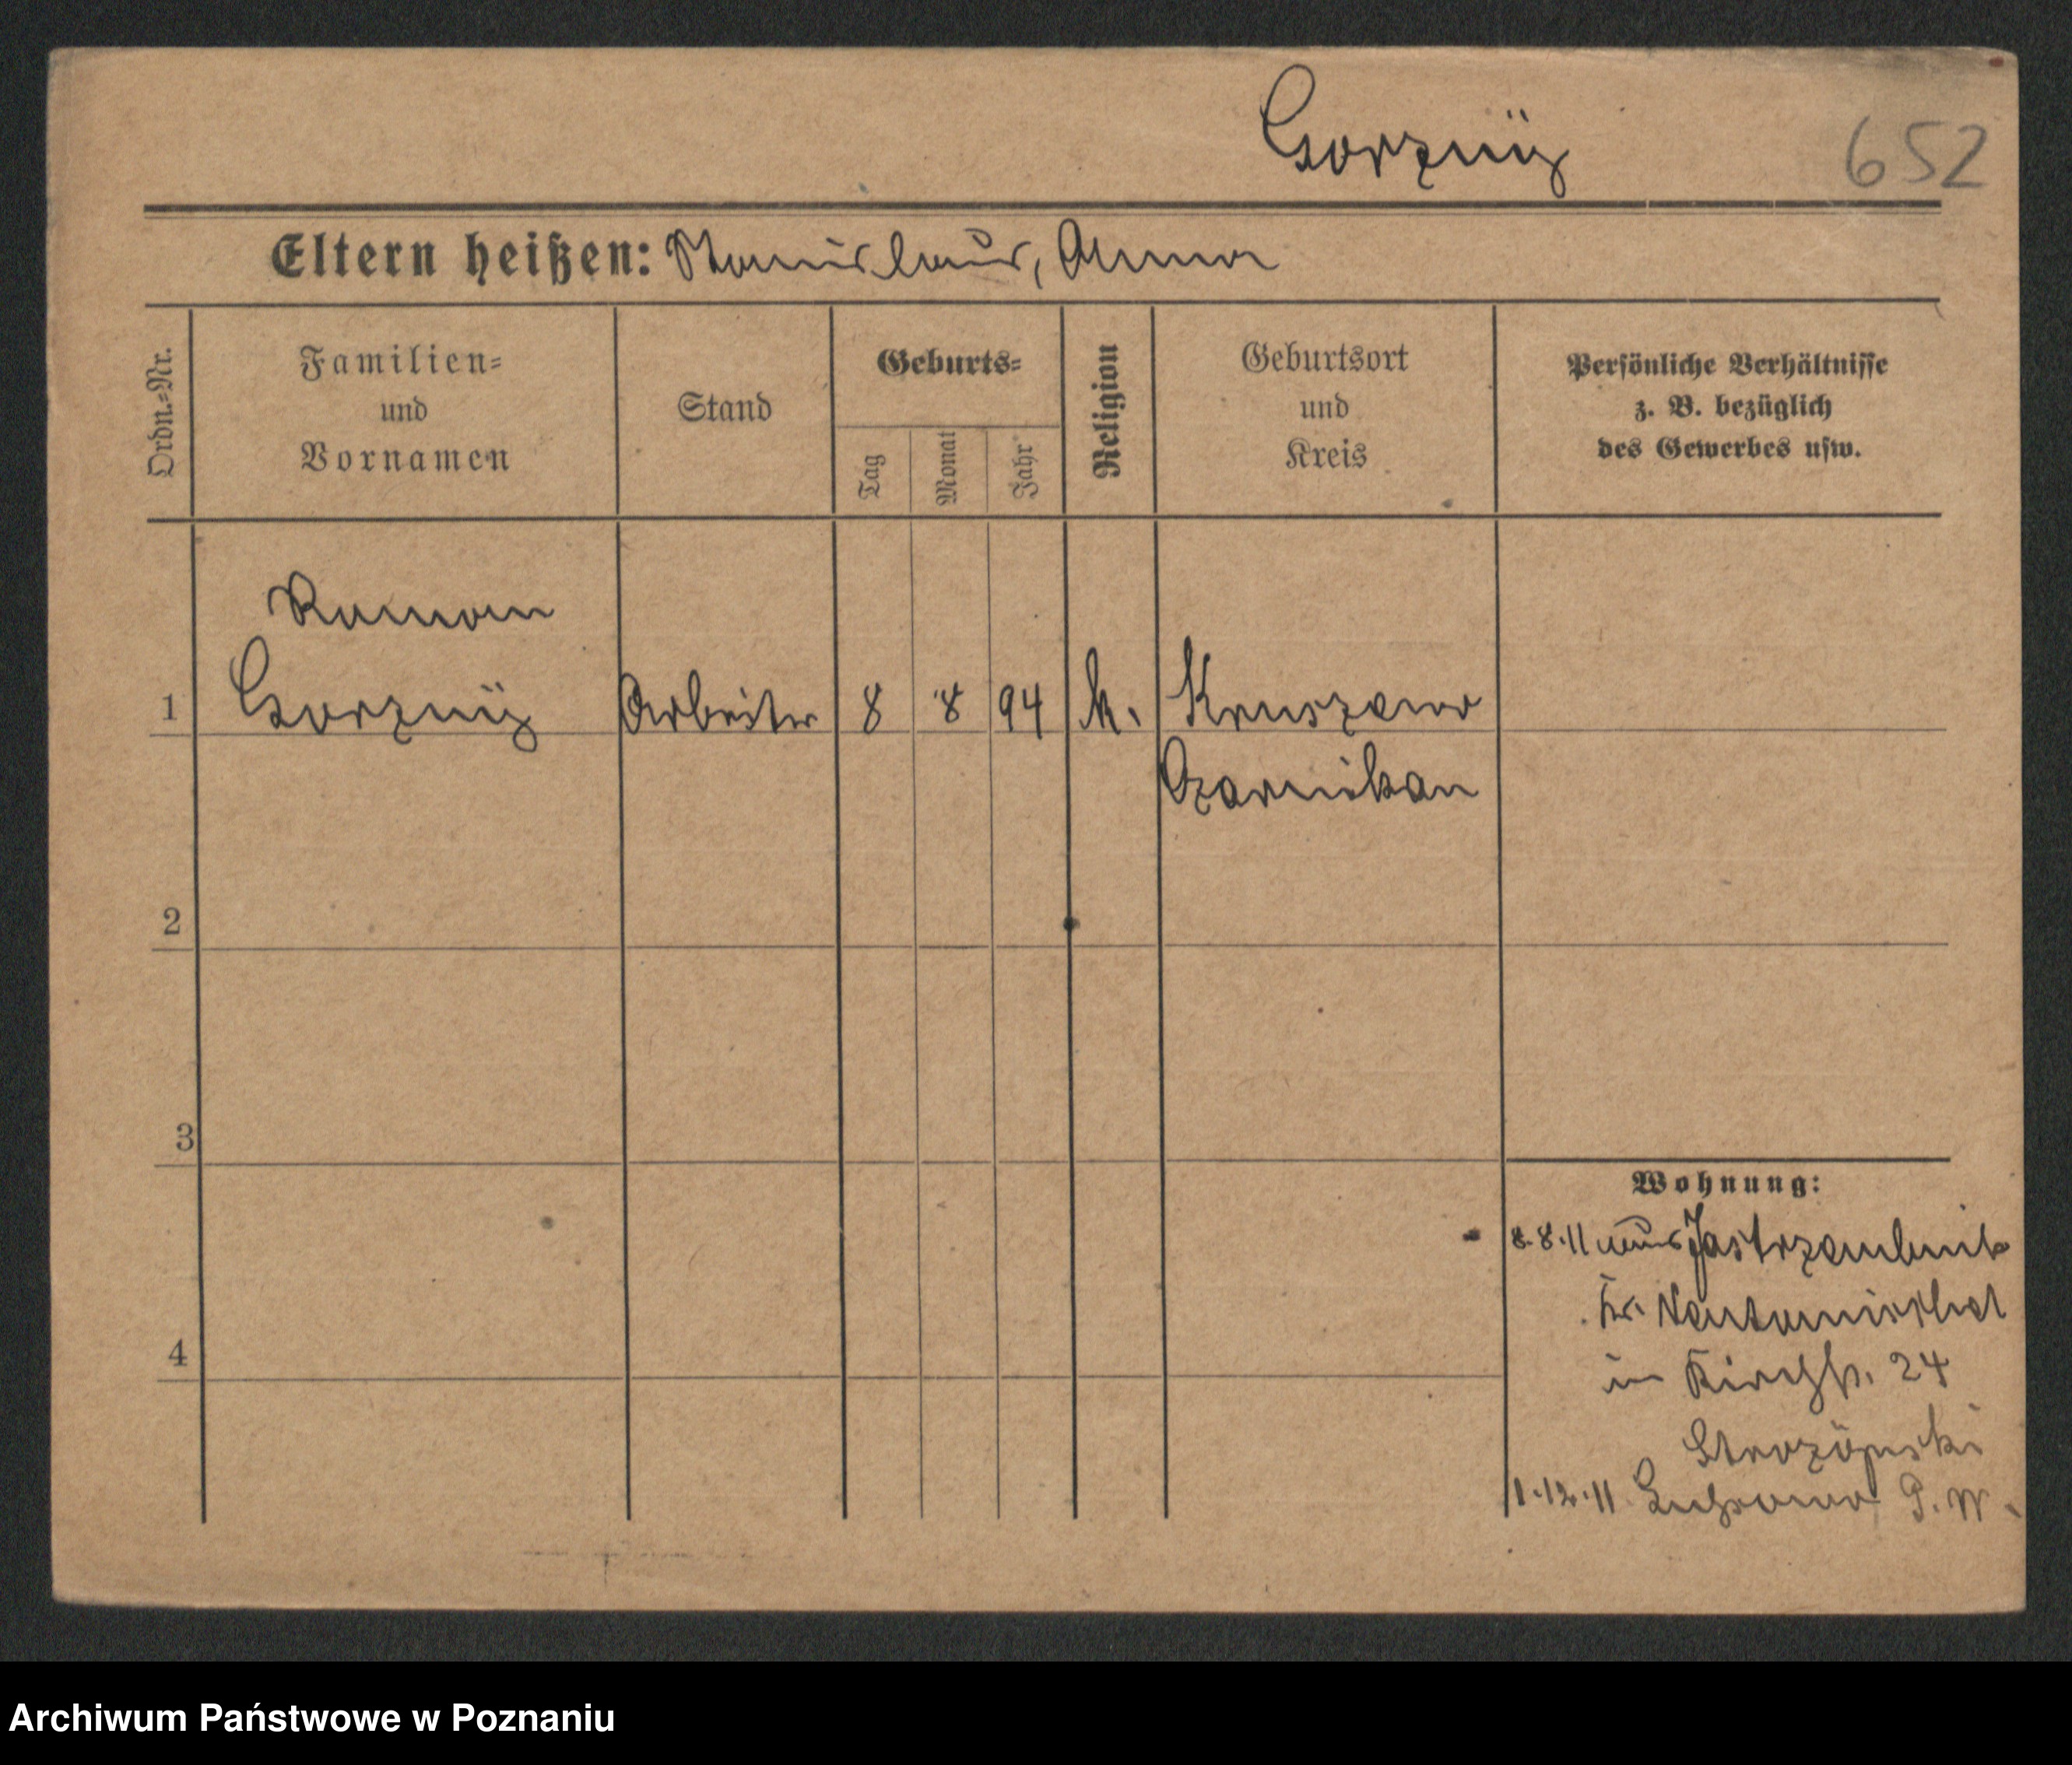 Gorzny
652
Eltern heißen: Stanislaus, Anna
Ordn.=Nr.
Familien=
und
Vornamen
Stand
Geburts=
Tag
Monat
Jahr
Religion
Geburtsort
und
Kreis
Persönliche Verhältnisse
z. B. bezüglich
des Gewerbes usw.
Roman
1 Gorzny Arbeiter 8 8 94 k. Kruszewo
Czarnikau
2
3
4
Wohnung:
8.8.11 aus Jastrzembnik
Kr. Neutomischel
in Kirchstr. 24
1.12.11
Archiwum Państwowe w Poznaniu